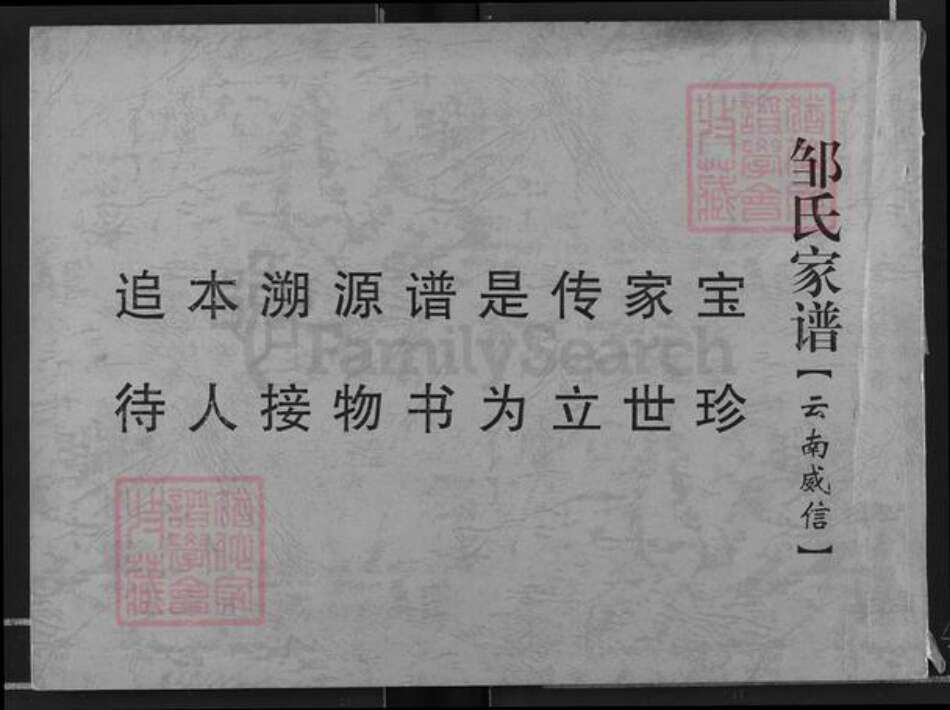 追本溯源谱是传家宝
待人接物书为立世珍
邹氏家谱【云南威信】
FamilySearch